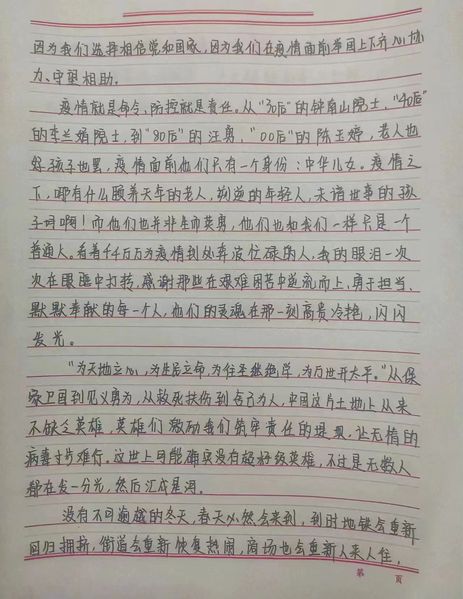 因为我们选择相信党和国家，因为我们在疫情面前举国上下齐心协
力、守望相助。
疫情就是命令，防控就是责任。从“30后”的钟南山院士，“40后”
的李兰娟院士，到“80后”的汪勇，“00后”的陈玉婷，老人也
好孩子也罢，疫情面前他们只有一个身份：中华儿女。疫情之
下，哪有什么颐养天年的老人，叛逆的年轻人，未谙世事的孩
子呵啊！而他们也并非生而英勇，他们也和我们一样只是一个
普通人。看着千千万万为疫情到处奔波忙碌的人，我的眼泪一次
次在眼眶中打转，感谢那些在艰难困苦中逆流而上、勇于担当、
默默奉献的每一个人，他们的灵魂在那一刻高贵冷艳，闪闪
发光。
“为天地立心，为生民立命，为往圣继绝学，为万世开太平。”从保
家卫国到见义勇为，从救死扶伤到舍己为人，中国这片土地上从来
不缺乏英雄，英雄们激励我们筑牢责任的堤坝，让无情的
病毒寸步难行。这世上可能确实没有超级英雄，不过是无数人
都在发一分光，然后汇成星河。
没有不可逾越的冬天，春天必然会来到，到时地铁会重新
回归拥挤，街道会重新恢复热闹，商场也会重新人来人往，
第 页